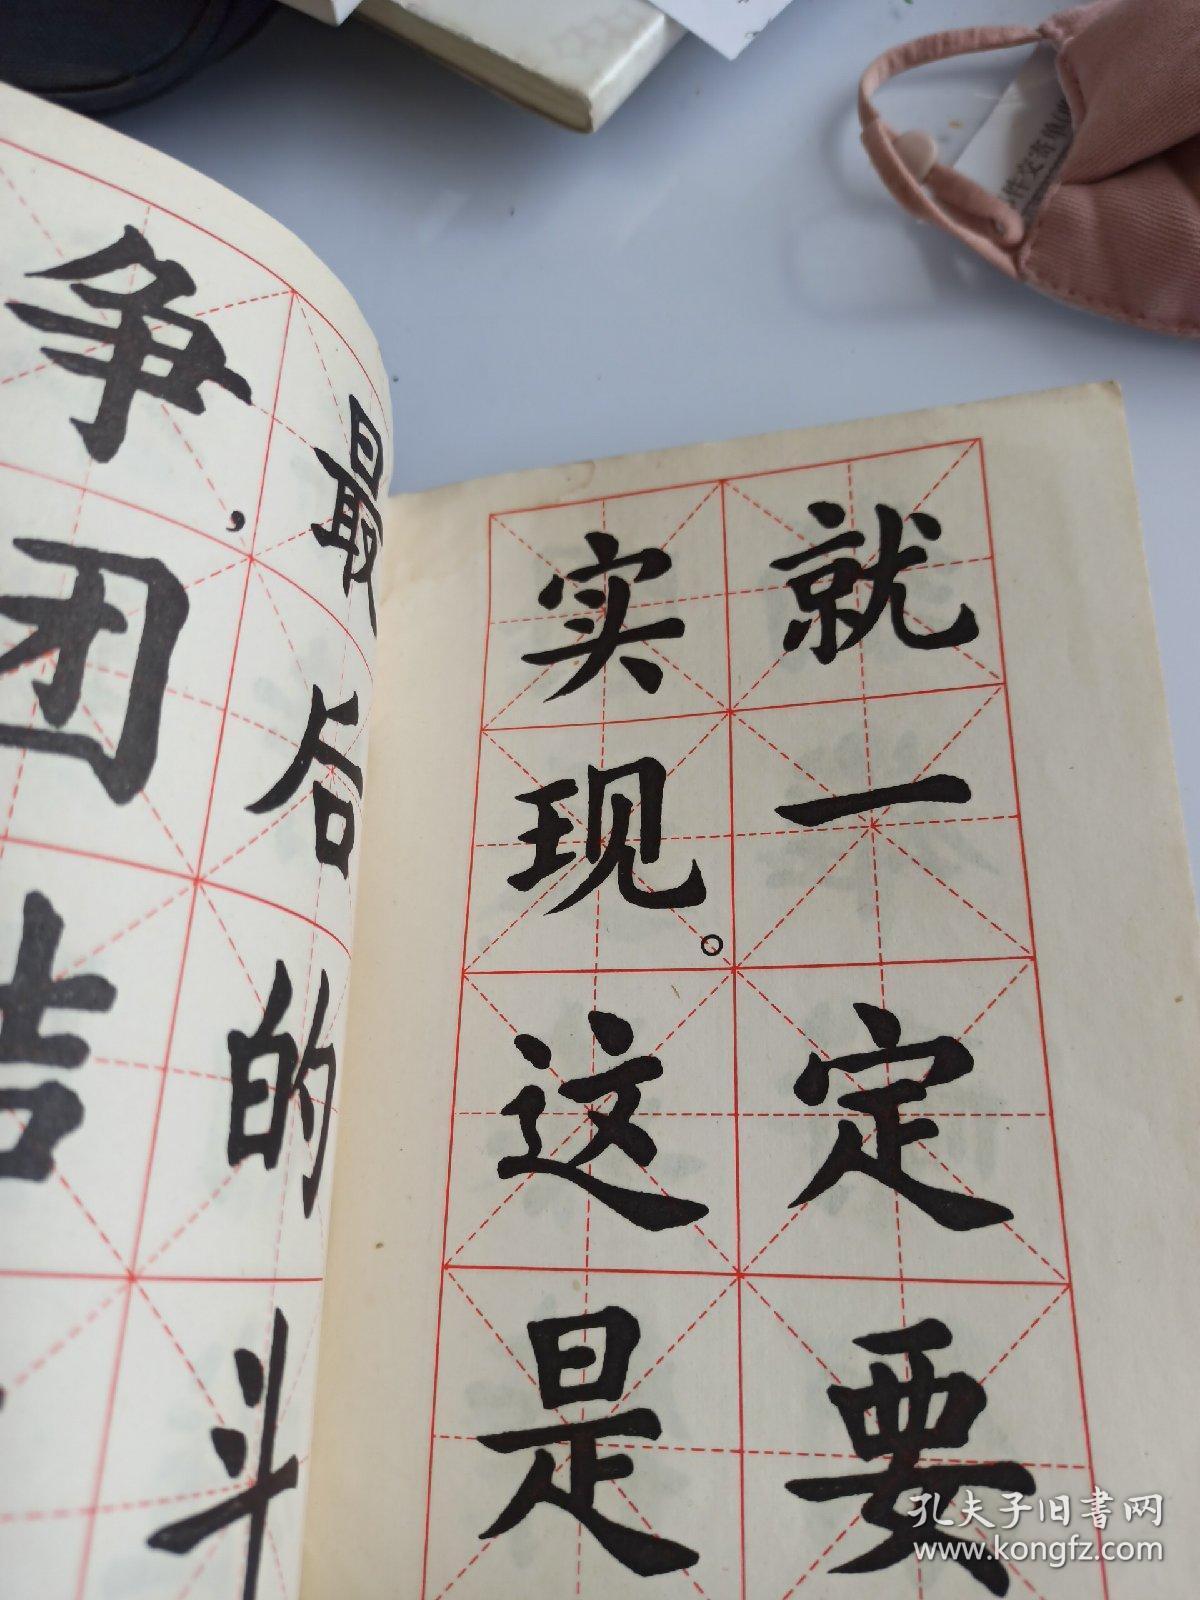 就一定要
实现。这是
最后的斗
争，团结
孔夫子旧書网
www.kongfz.com
件交寄单